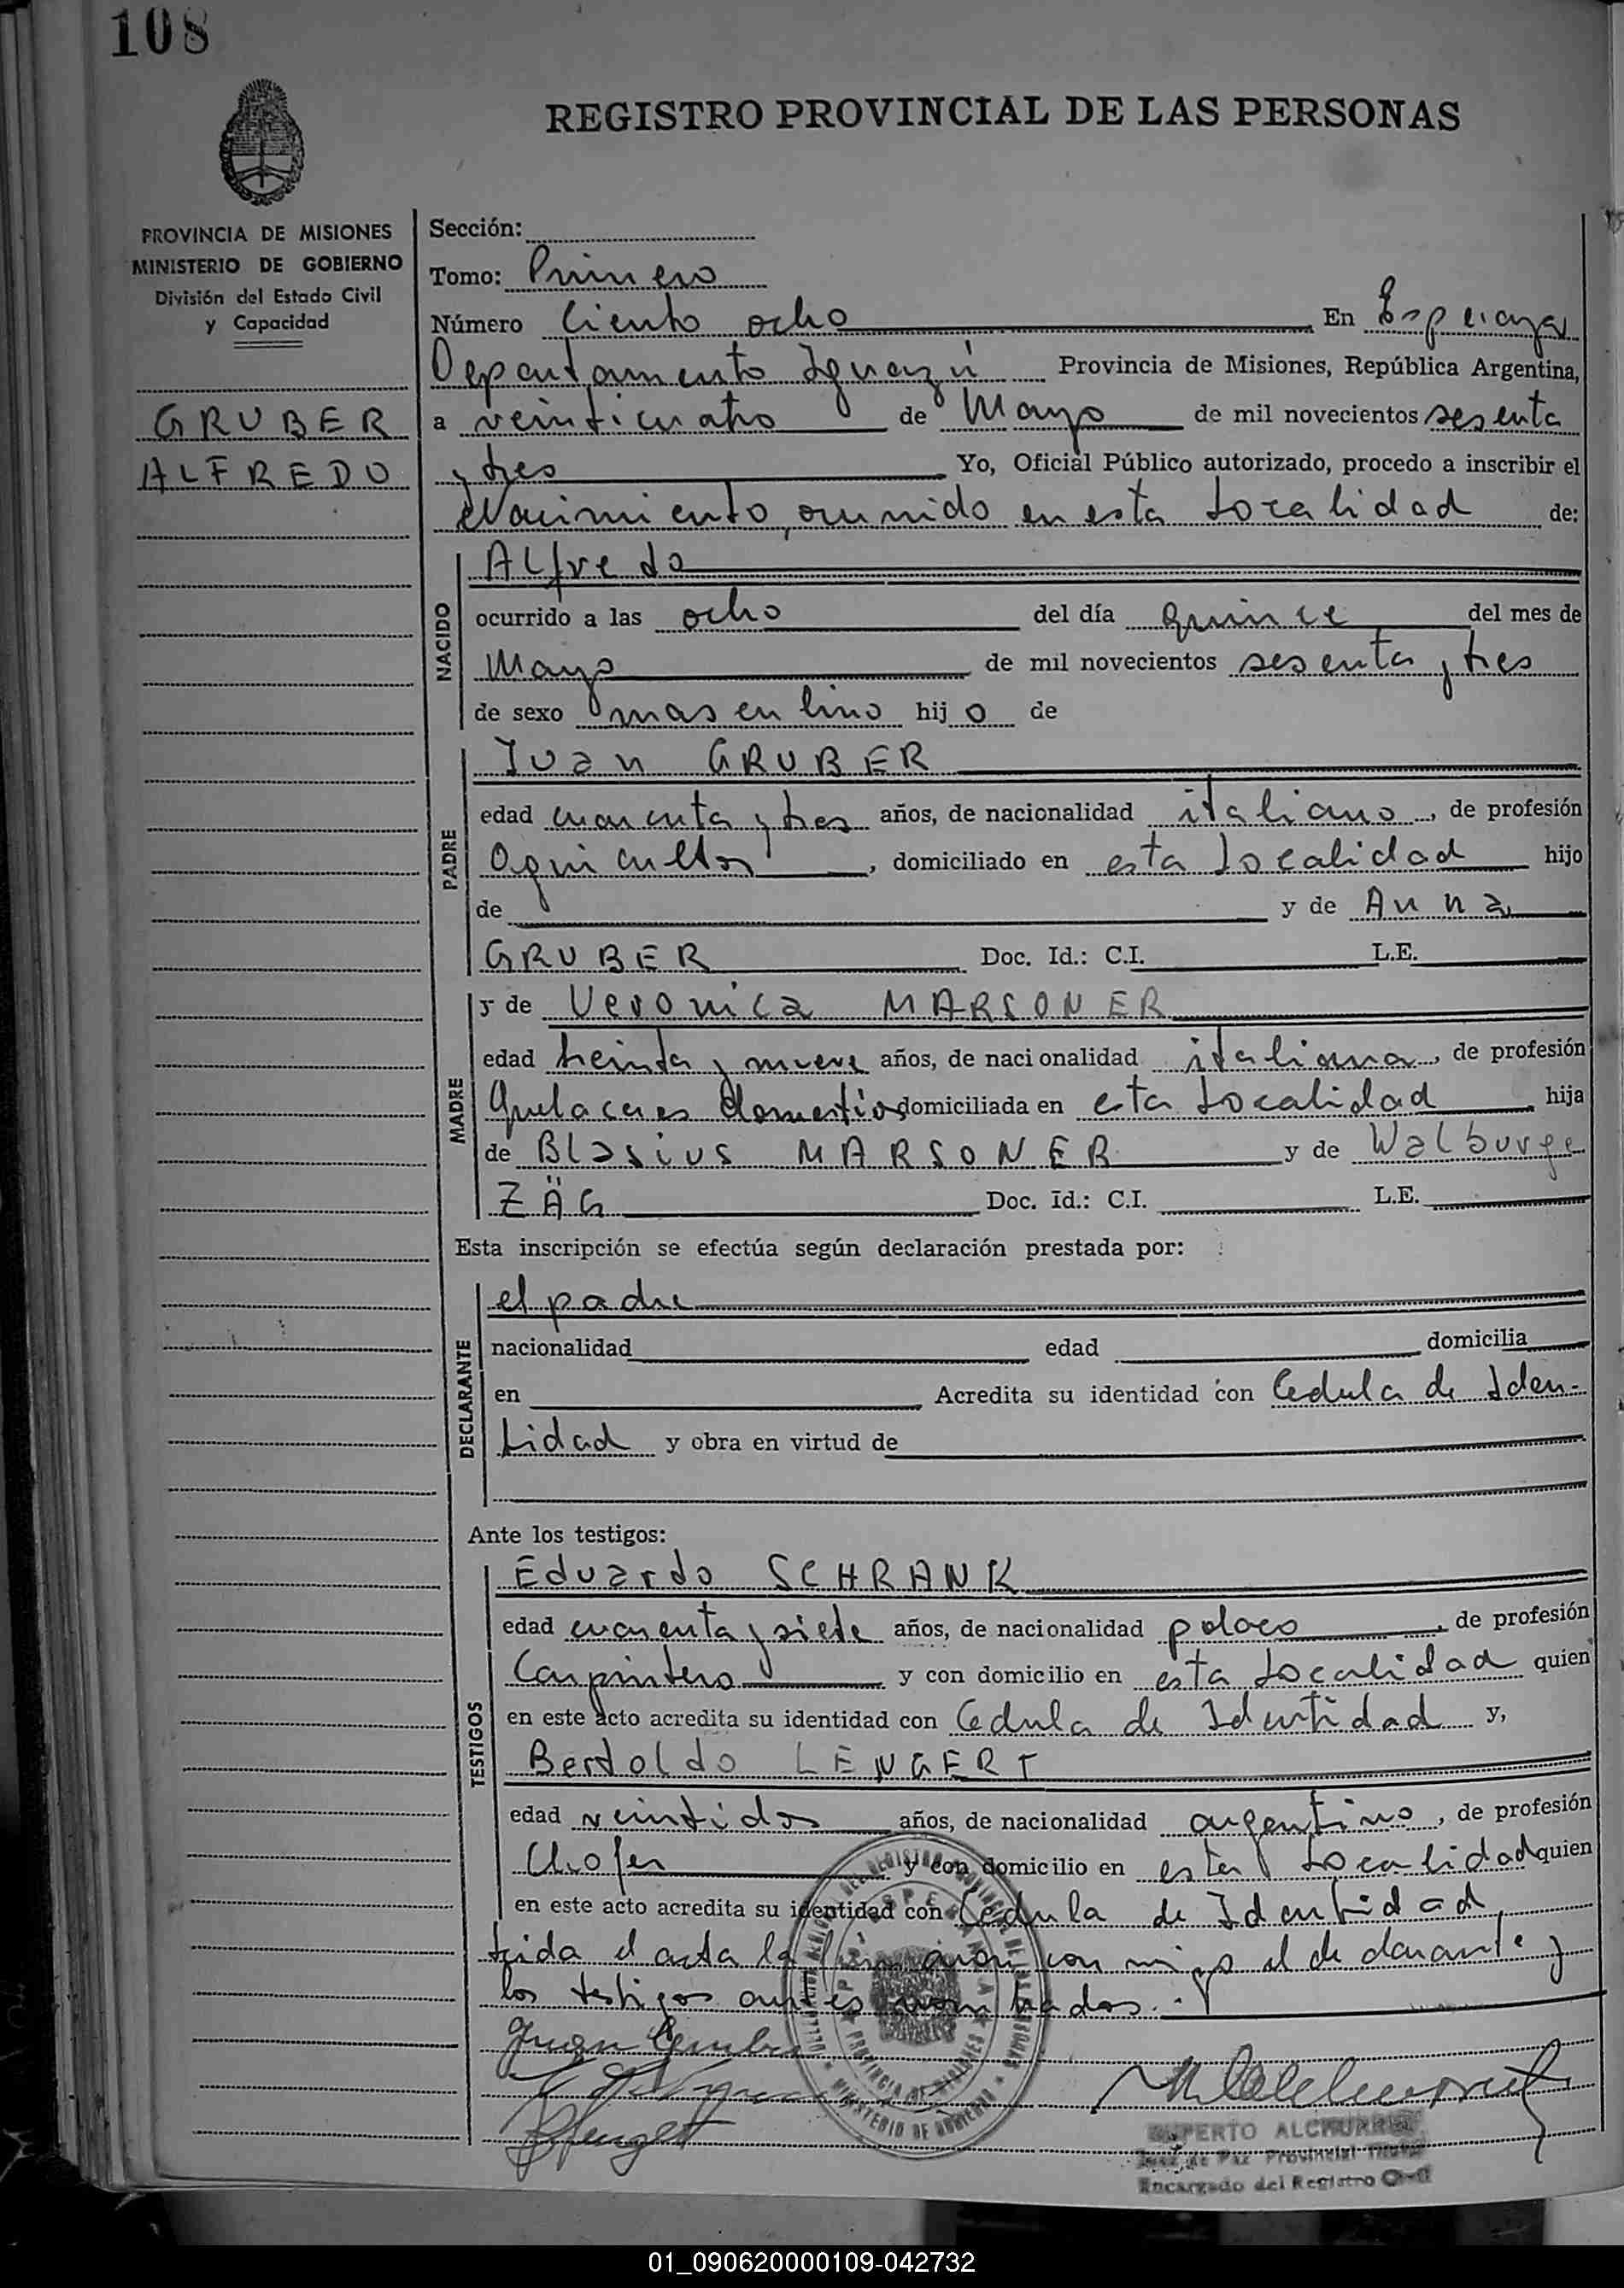 108
REGISTRO PROVINCIAL DE LAS PERSONAS
PROVINCIA DE MISIONES
MINISTERIO DE GOBIERNO
División del Estado Civil
y Capacidad
GRUBER
ALFREDO
Sección:
Tomo: Primero
Número Ciento ocho En Esperanza
Departamento Iguazú Provincia de Misiones, República Argentina,
a veinticuatro de Mayo de mil novecientos sesenta
y tres Yo, Oficial Público autorizado, procedo a inscribir el
Nacimiento, ocurrido en esta Localidad de:
NACIDO
Alfredo
ocurrido a las ocho del día quince del mes de
Mayo de mil novecientos sesenta y tres
de sexo masculino hijo de
PADRE
Juan GRUBER
edad cuarenta y tres años, de nacionalidad italiano, de profesión
Agricultor, domiciliado en esta Localidad hijo
de y de Anna
GRUBER Doc. Id.: C.I. L.E.
MADRE
y de Veronica MARSONER
edad treinta y nueve años, de nacionalidad italiana, de profesión
Quehaceres domesticos domiciliada en esta Localidad hija
de Blasius MARSONER y de Walburge
ZÄG Doc. Id.: C.I. L.E.
Esta inscripción se efectúa según declaración prestada por:
DECLARANTE
el padre
nacionalidad edad domicilia
en Acredita su identidad con Cedula de Iden-
tidad y obra en virtud de
Ante los testigos:
TESTIGOS
Eduardo SCHRANK
edad cuarenta y siete años, de nacionalidad polaco, de profesión
Carpintero y con domicilio en esta Localidad quien
en este acto acredita su identidad con Cedula de Identidad y,
Bertoldo LENGERT
edad veintidos años, de nacionalidad argentino, de profesión
Chofer y con domicilio en esta Localidad quien
en este acto acredita su identidad con Cedula de Identidad,
leida el acta la firmaron conmigo el declarante y
los testigos antes nombrados.-
Juan Gruber
PROVINCIA DE MISIONES
MINISTERIO DE GOBIERNO
Juez de Paz Provincial Titular
Encargado del Registro Civil
01_090620000109-042732